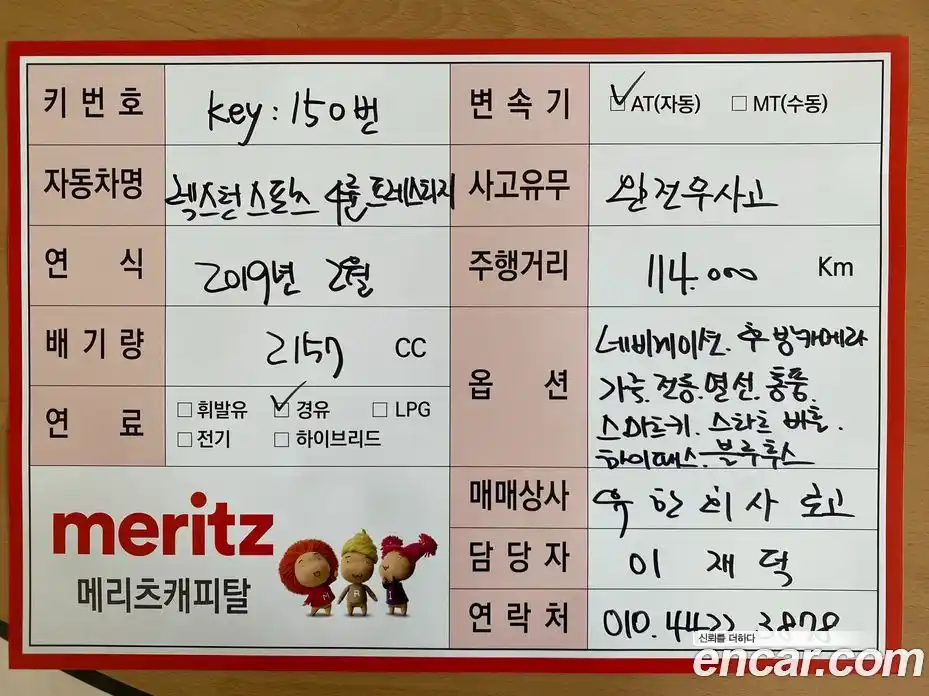 키번호 key : 150번
자동차명 렉스턴스포츠 4륜프레스티지
연식 2019년 2월
배기량 2157 CC
연료 휘발유 경유 LPG
전기 하이브리드
meritz
메리츠캐피탈
변속기 AT(자동) MT(수동)
사고유무 완전무사고
주행거리 114.000 Km
옵션 네비게이션. 후방카메라
가죽. 전동. 열선. 통풍.
스마트키. 스타트 버튼.
하이패스. 블루투스
매매상사 유한회사 최고
담당자 이재덕
연락처 010. 4422. 3878
신뢰를 더하다
encar.com